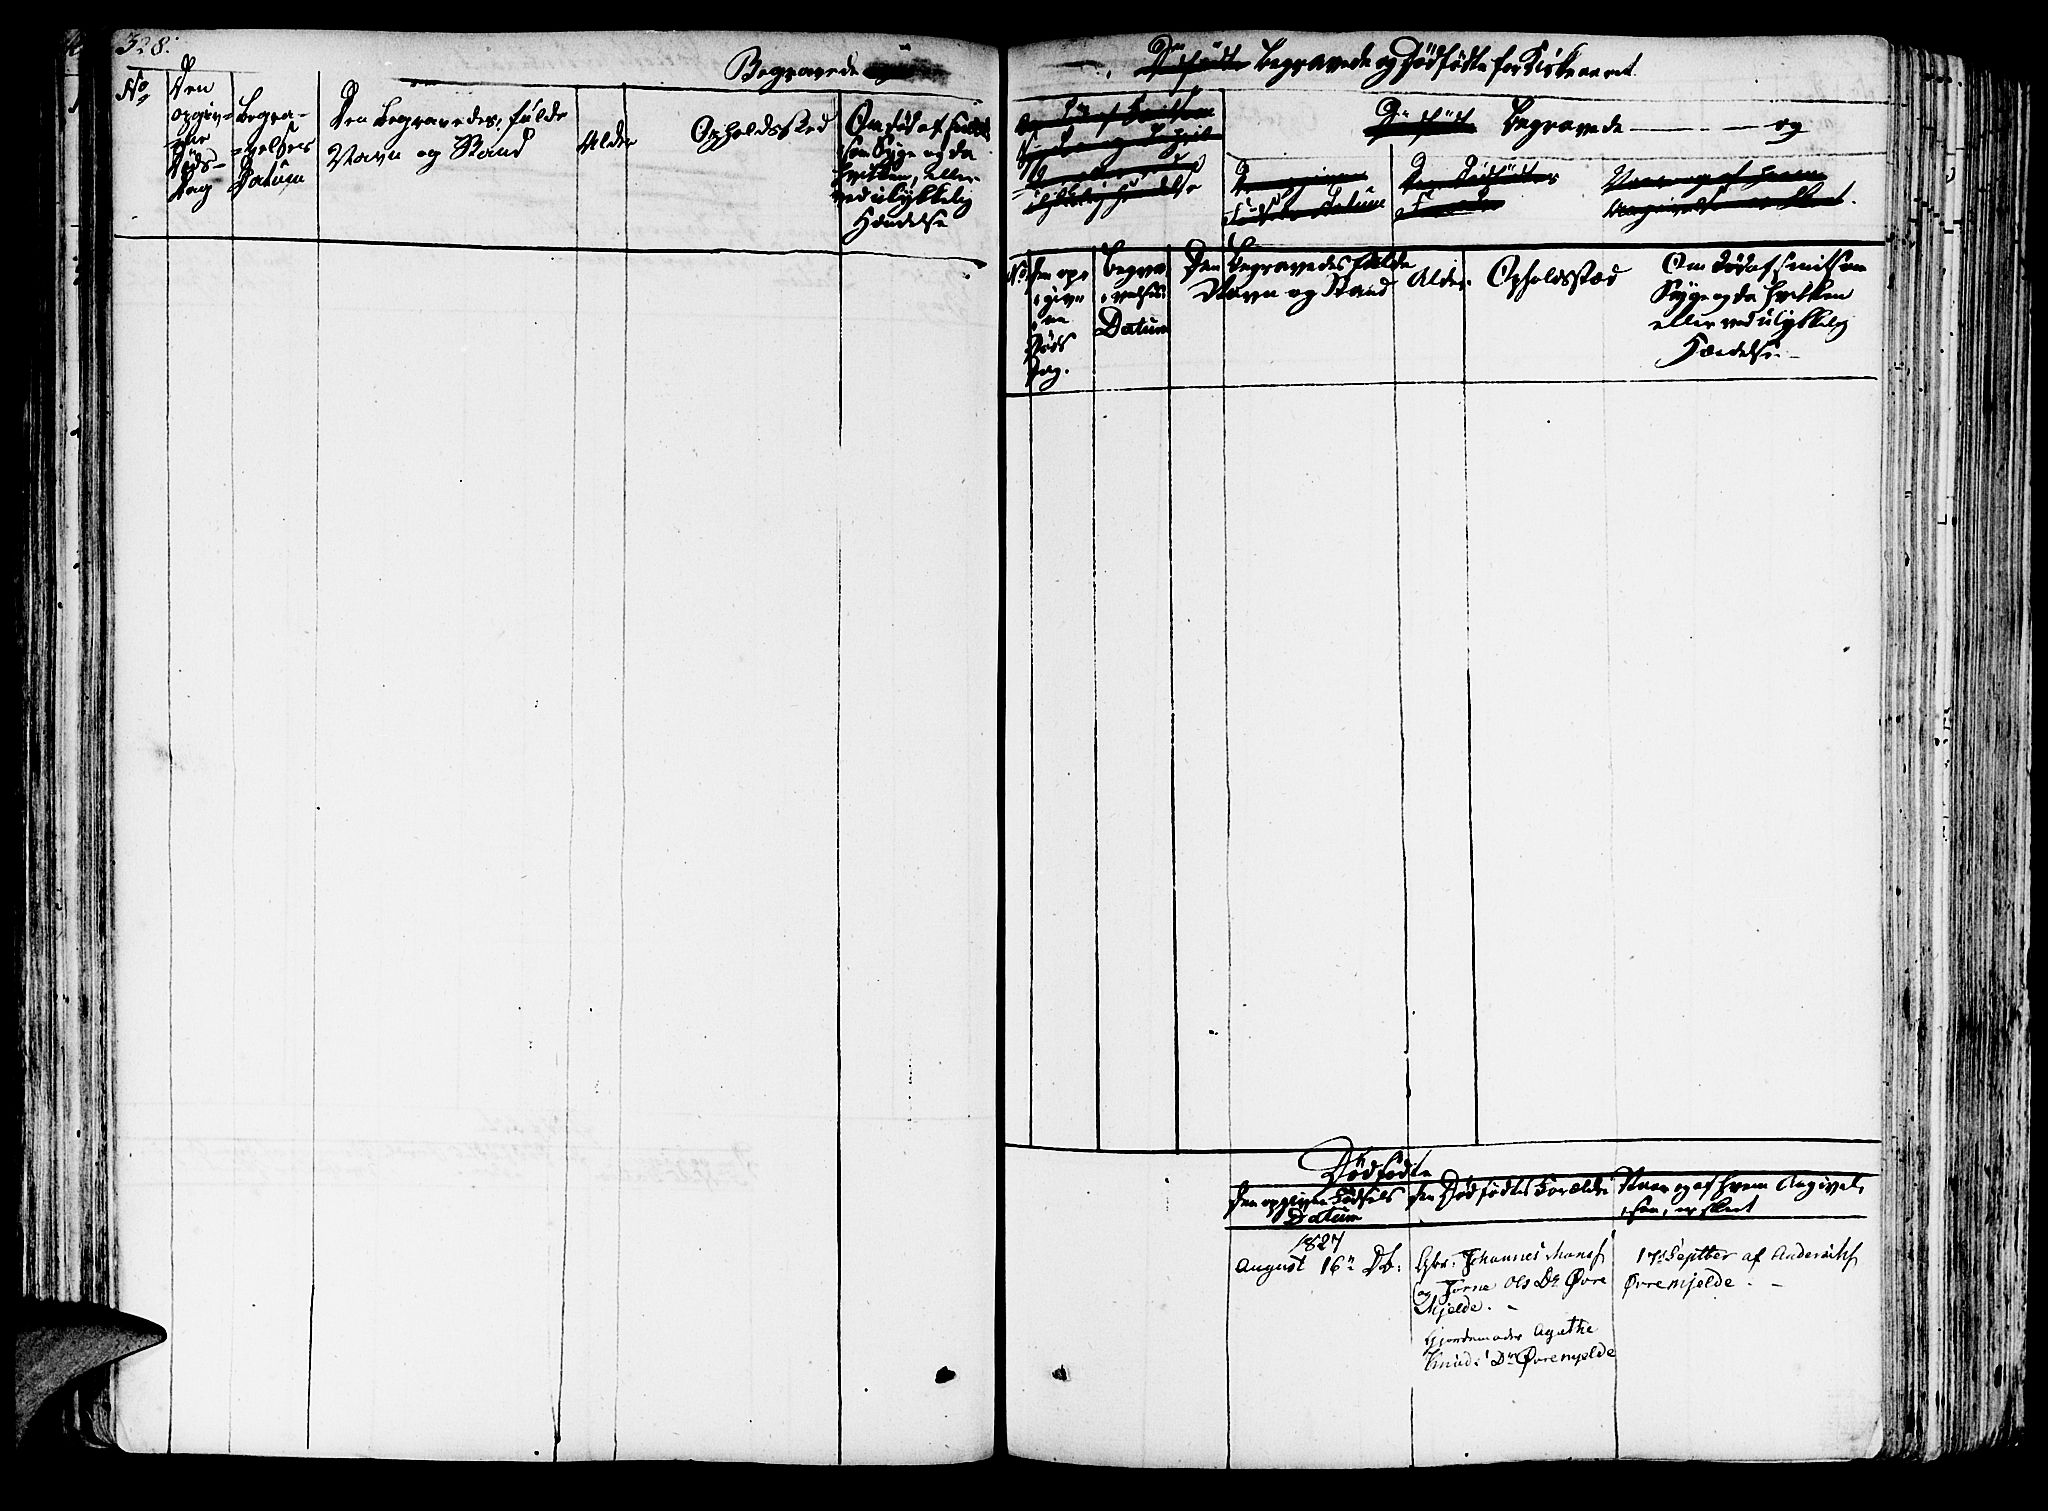 328.
Begravede
No
Den
opgiv-
ne
Døds-
Dag
Begra-
velses
Datum
Den Begravedes fulde
Navn og Stand
Alder
Opholdssted
Om død af smit-
som Syge og da
hvilken, eller
ved ulykkelig
Hændelse
Begravede og dødfødte for Kirkeaaret
Begravede - - - og
No
Den op-
giv-
ne
Døds
Dag.
Begra-
velses
Datum
Den Begravedes fulde
Navn og Stand
Alder.
Opholdsstæd
Om død af smitsom
Syge og da hvilken
eller ved ulykkelig
Hændelse.
Dødfødte
Den opgivne Fødsels
Datum
Den Dødfødtes Forældre
Naar og af hvem Angivel-
sen er skeet
1827
August 16n Db:
Gbr: Johannes Mons
og Jorne Ols Dr Øvre
Mjelde. -
Gjordemoder Agathe
Knuds Dr Øvremjelde
17d Septber af Anders
Øvremjelde - -